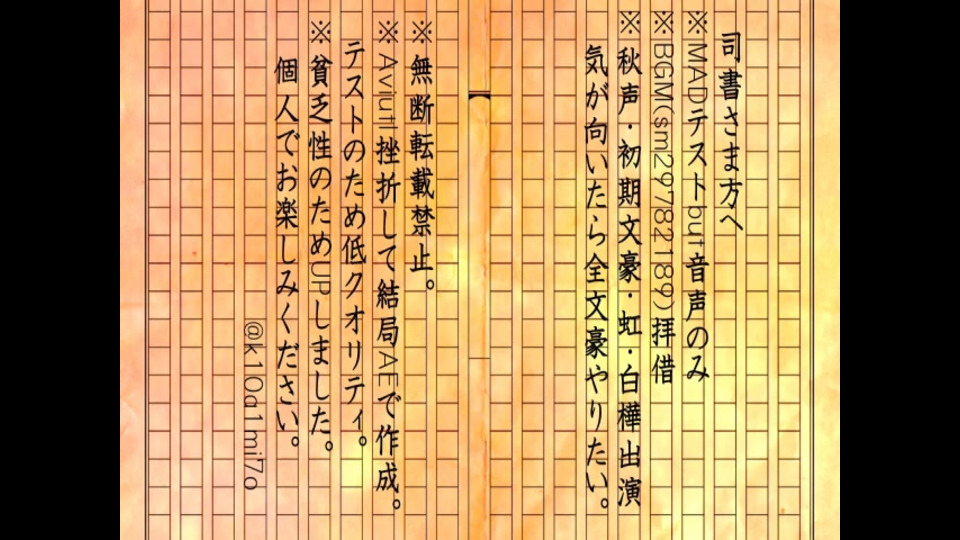 司書さま方へ
※MADテストbut音声のみ
※BGM(sm29782189)拝借
※秋声・初期文豪・虹・白樺出演
気が向いたら全文豪やりたい。
※無断転載禁止。
※Aviutl挫折して結局AEで作成。
テストのため低クオリティ。
※貧乏性のためUPしました。
個人でお楽しみください。
@k10a1mi7o